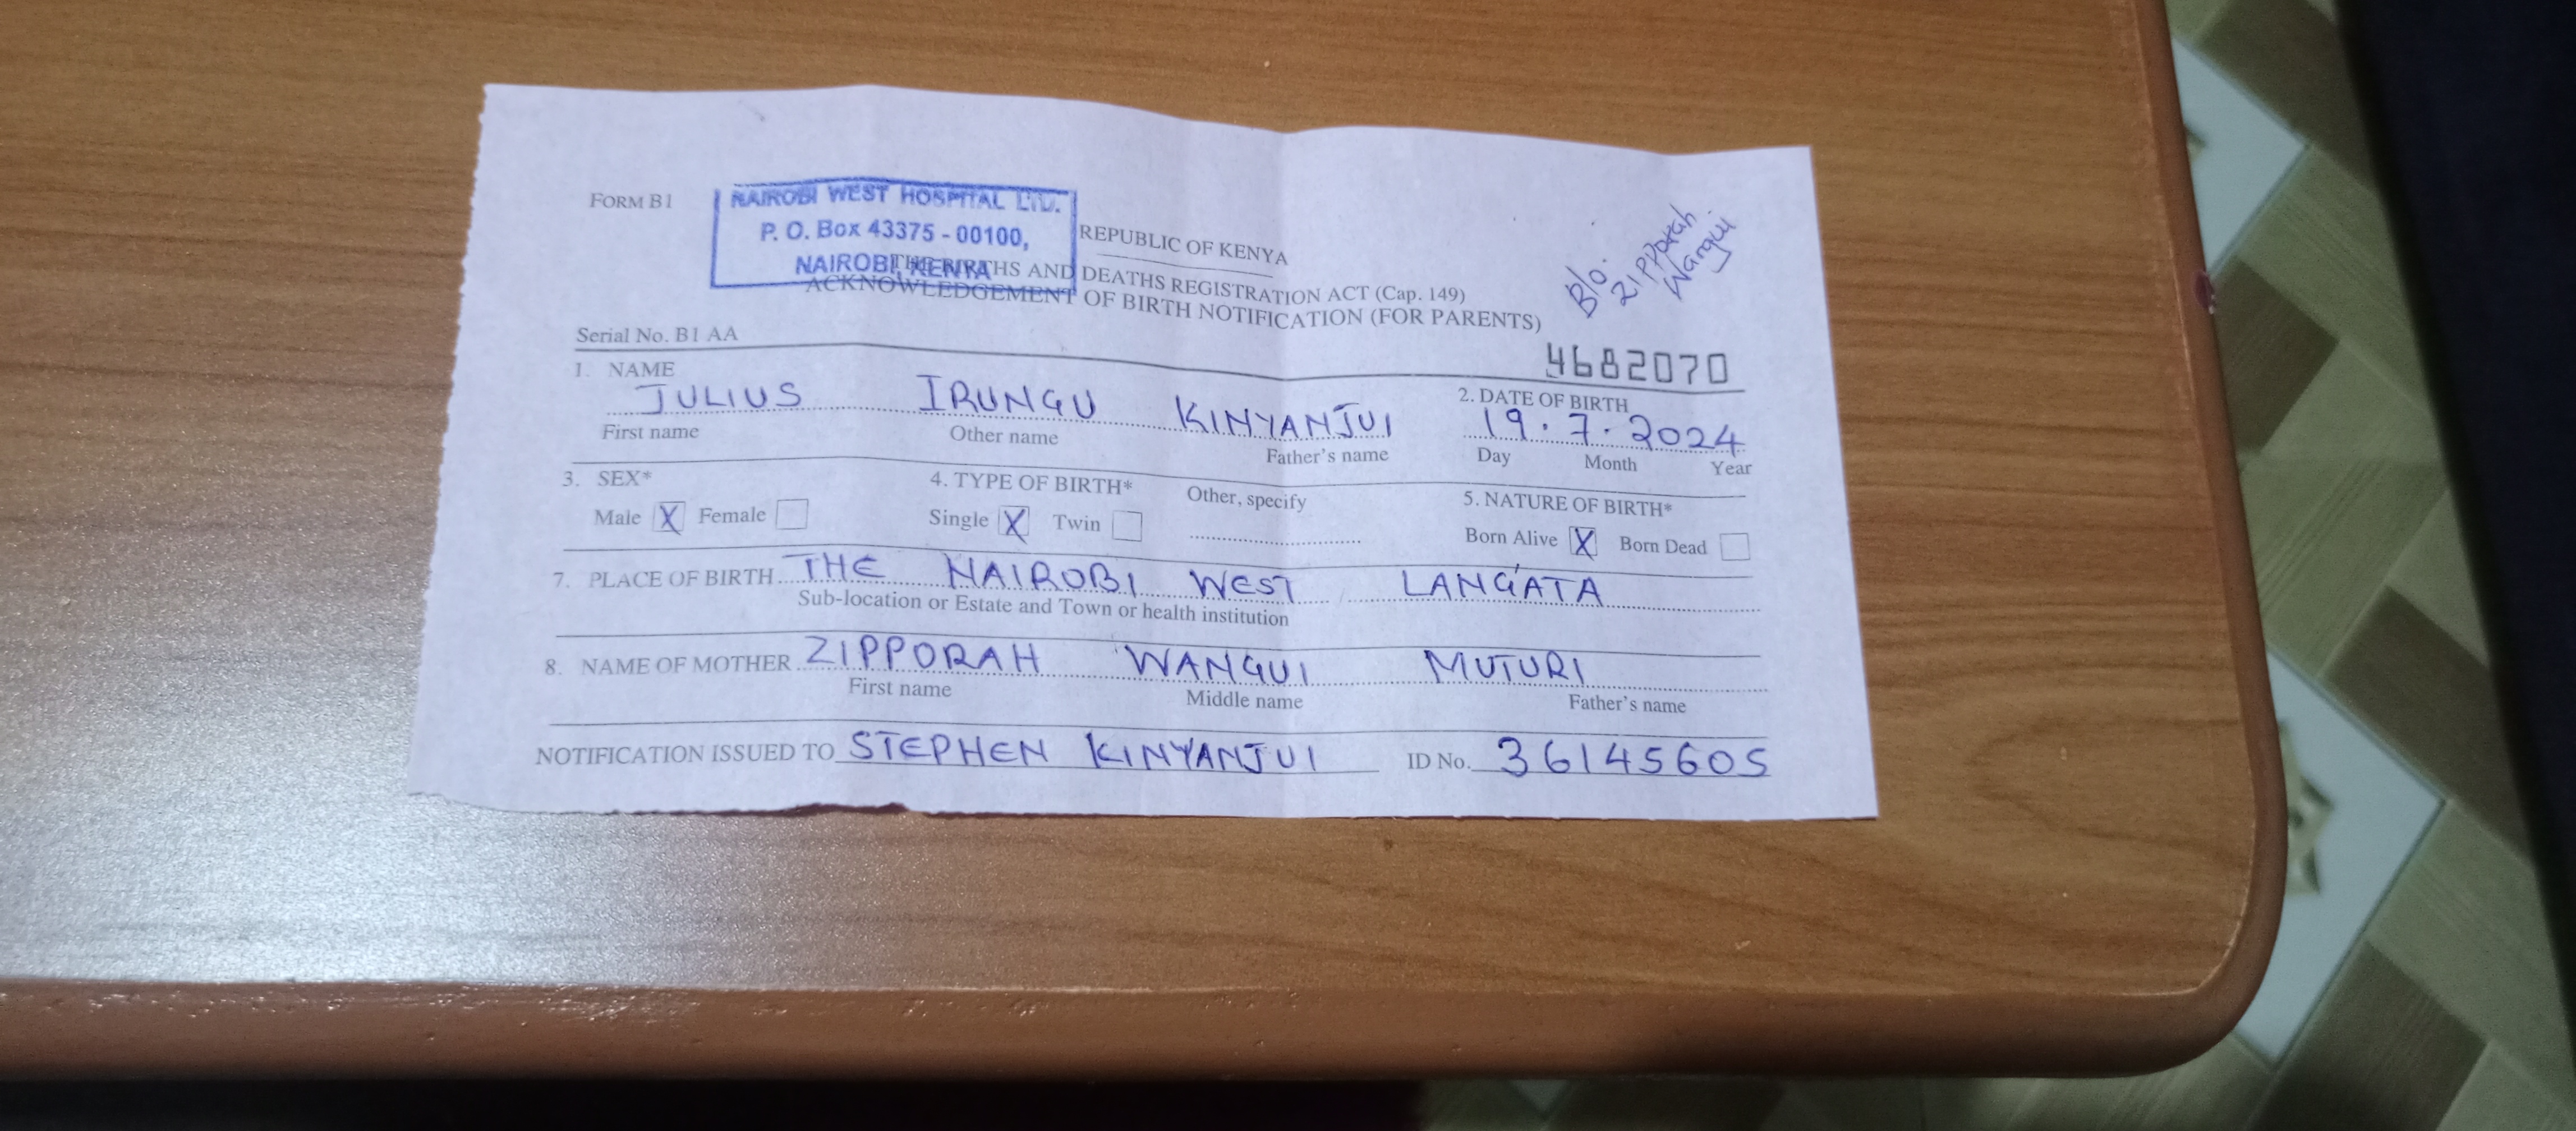 FORM B1
NAIROBI WEST HOSPITAL LTD.
P. O. Box 43375 - 00100,
NAIROBI, KENYA
REPUBLIC OF KENYA
THE BIRTHS AND DEATHS REGISTRATION ACT (Cap. 149)
ACKNOWLEDGEMENT OF BIRTH NOTIFICATION (FOR PARENTS)
B/o. Zipporah
Wangui
Serial No. B1 AA 4682070
1. NAME 2. DATE OF BIRTH
JULIUS IRUNGU KINYANJUI 19.7.2024
First name Other name Father's name Day Month Year
3. SEX* 4. TYPE OF BIRTH* Other, specify 5. NATURE OF BIRTH*
Male X Female Single X Twin Born Alive X Born Dead
7. PLACE OF BIRTH THE NAIROBI WEST LANG'ATA
Sub-location or Estate and Town or health institution
8. NAME OF MOTHER ZIPPORAH WANGUI MUTURI
First name Middle name Father's name
NOTIFICATION ISSUED TO STEPHEN KINYANJUI ID No. 36145605